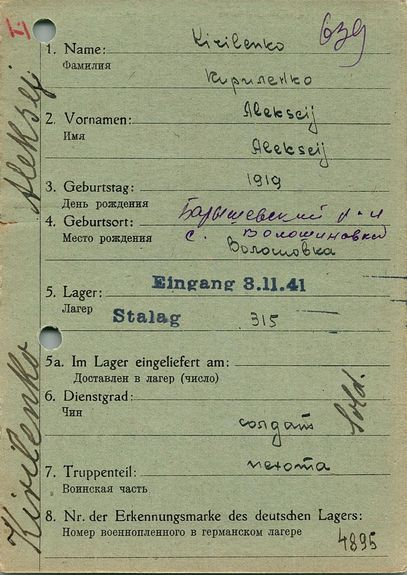 I
639
1. Name: Kirilenko
Фамилия
Кириленко
2. Vornamen: Alekseij
Имя
Alekseij
3. Geburtstag: 1919
День рождения
Барышевский р-н
4. Geburtsort: с. Волошиновка
Место рождения
Волошовка
Eingang 3.11.41
5. Lager:
Лагер
Stalag 315
5a. Im Lager eingeliefert am:
Доставлен в лагер (число)
6. Dienstgrad: Sold.
Чин
солдат
пехота
7. Truppenteil:
Воинская часть
8. Nr. der Erkennungsmarke des deutschen Lagers:
Номер военнопленного в германском лагере
4895
Kirilenko Aleksej